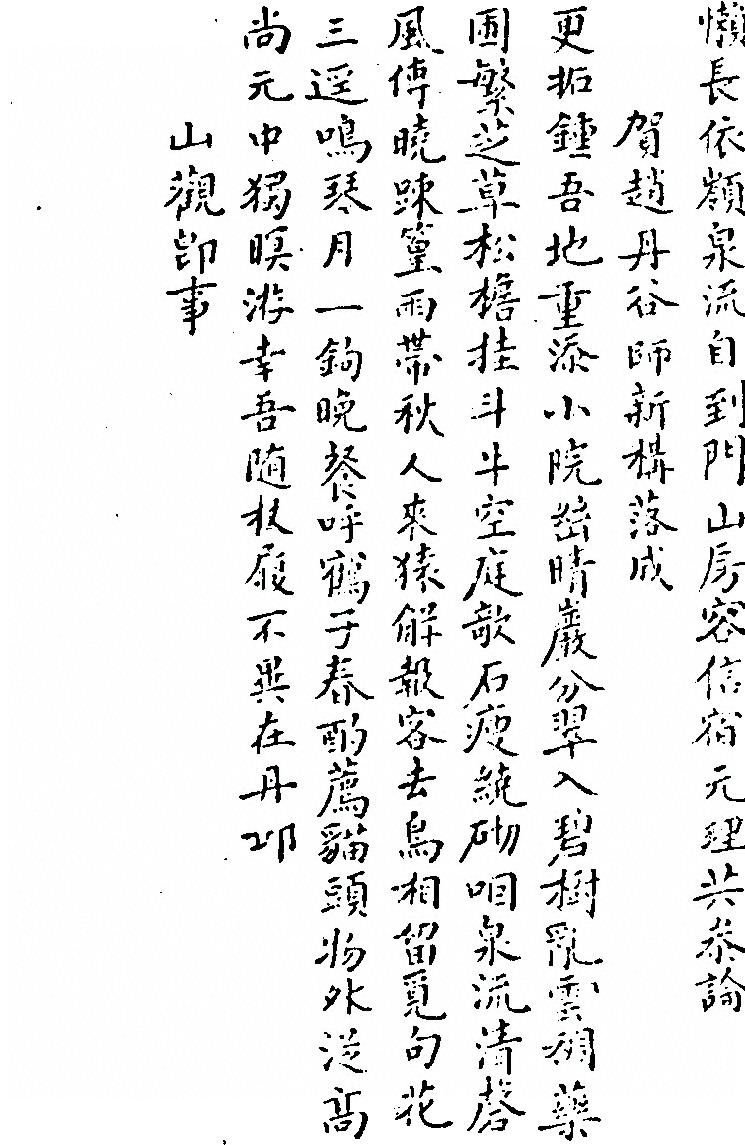 懶長依頽泉流自到門山房容信宿元理共參論
賀趙丹谷師新構落成
更拓鍾吾地重添小院幽晴巖分翠入碧樹亂雲稠藥
圃繁芝草松檐挂斗牛空庭欹石瘦繞砌咽泉流清磬
風傳曉踈篁雨帶秋人來猿解報客去鳥相留覓句花
三逕鳴琴月一鉤晚餐呼鶴子春酌薦貓頭物外從高
尚元中獨暝游幸吾随杖屨不異在丹邱
山觀卽事